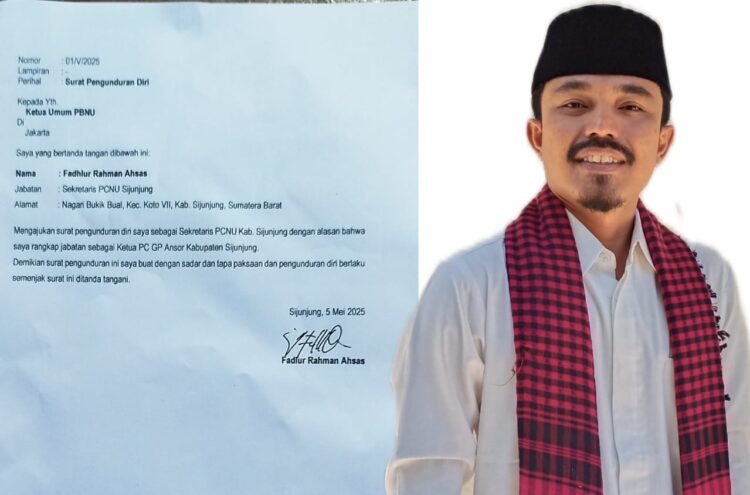 Nomor : 01/V/2025
Lampiran : -
Perihal : Surat Pengunduran Diri
Kepada Yth.
Ketua Umum PBNU
Di
Jakarta
Saya yang bertanda tangan dibawah ini:
Nama : Fadhlur Rahman Ahsas
Jabatan : Sekretaris PCNU Sijunjung
Alamat : Nagari Bukik Bual, Kec. Koto VII, Kab. Sijunjung, Sumatera Barat
Mengajukan surat pengunduran diri saya sebagai Sekretaris PCNU Kab. Sijunjung dengan alasan bahwa
saya rangkap jabatan sebagai Ketua PC GP Ansor Kabupaten Sijunjung.
Demikian surat pengunduran ini saya buat dengan sadar dan tapa paksaan dan pengunduran diri berlaku
semenjak surat ini ditanda tangani.
Sijunjung, 5 Mei 2025
Fadlur Rahman Ahsas